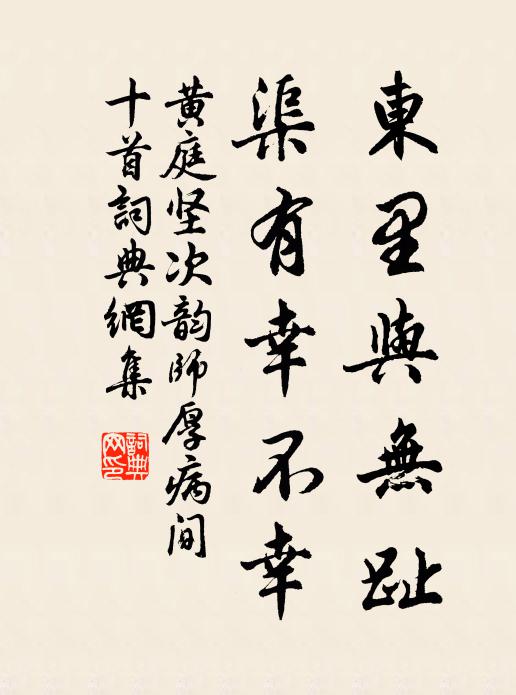 東里與無趾
渠有幸不幸
黄庭坚次韵師厚病间
十首詞典網集
詞典網印